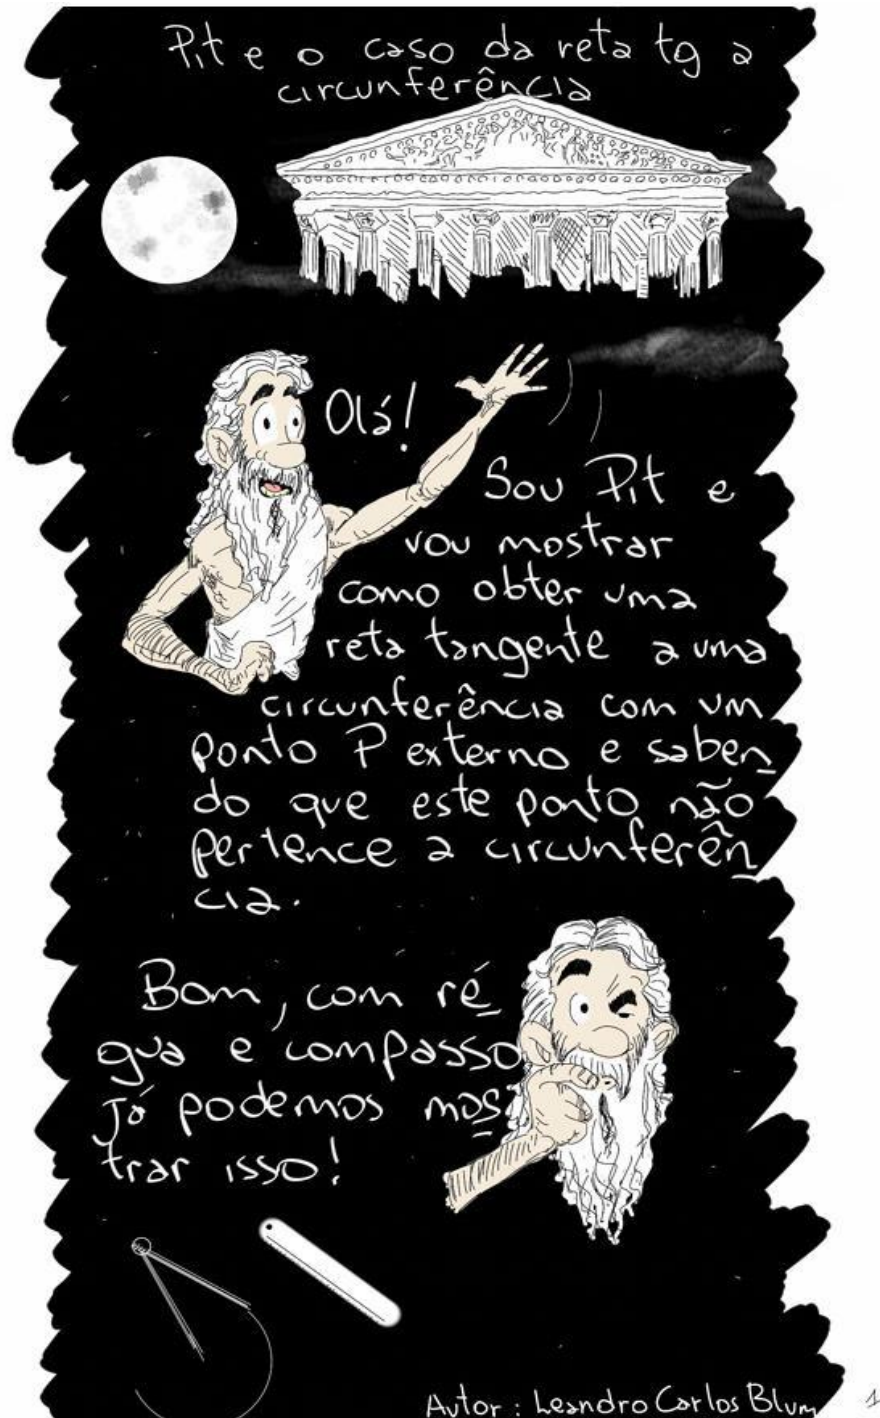 Pit e o caso da reta tg a
circunferência
Olá!
Sou Pit e
vou mostrar
como obter uma
reta tangente a uma
circunferência com um
ponto P externo e saben
do que este ponto não
pertence a circunferên
cia.
Bom, com ré
gua e compasso
já podemos mos
trar isso!
Autor: Leandro Carlos Blum
1